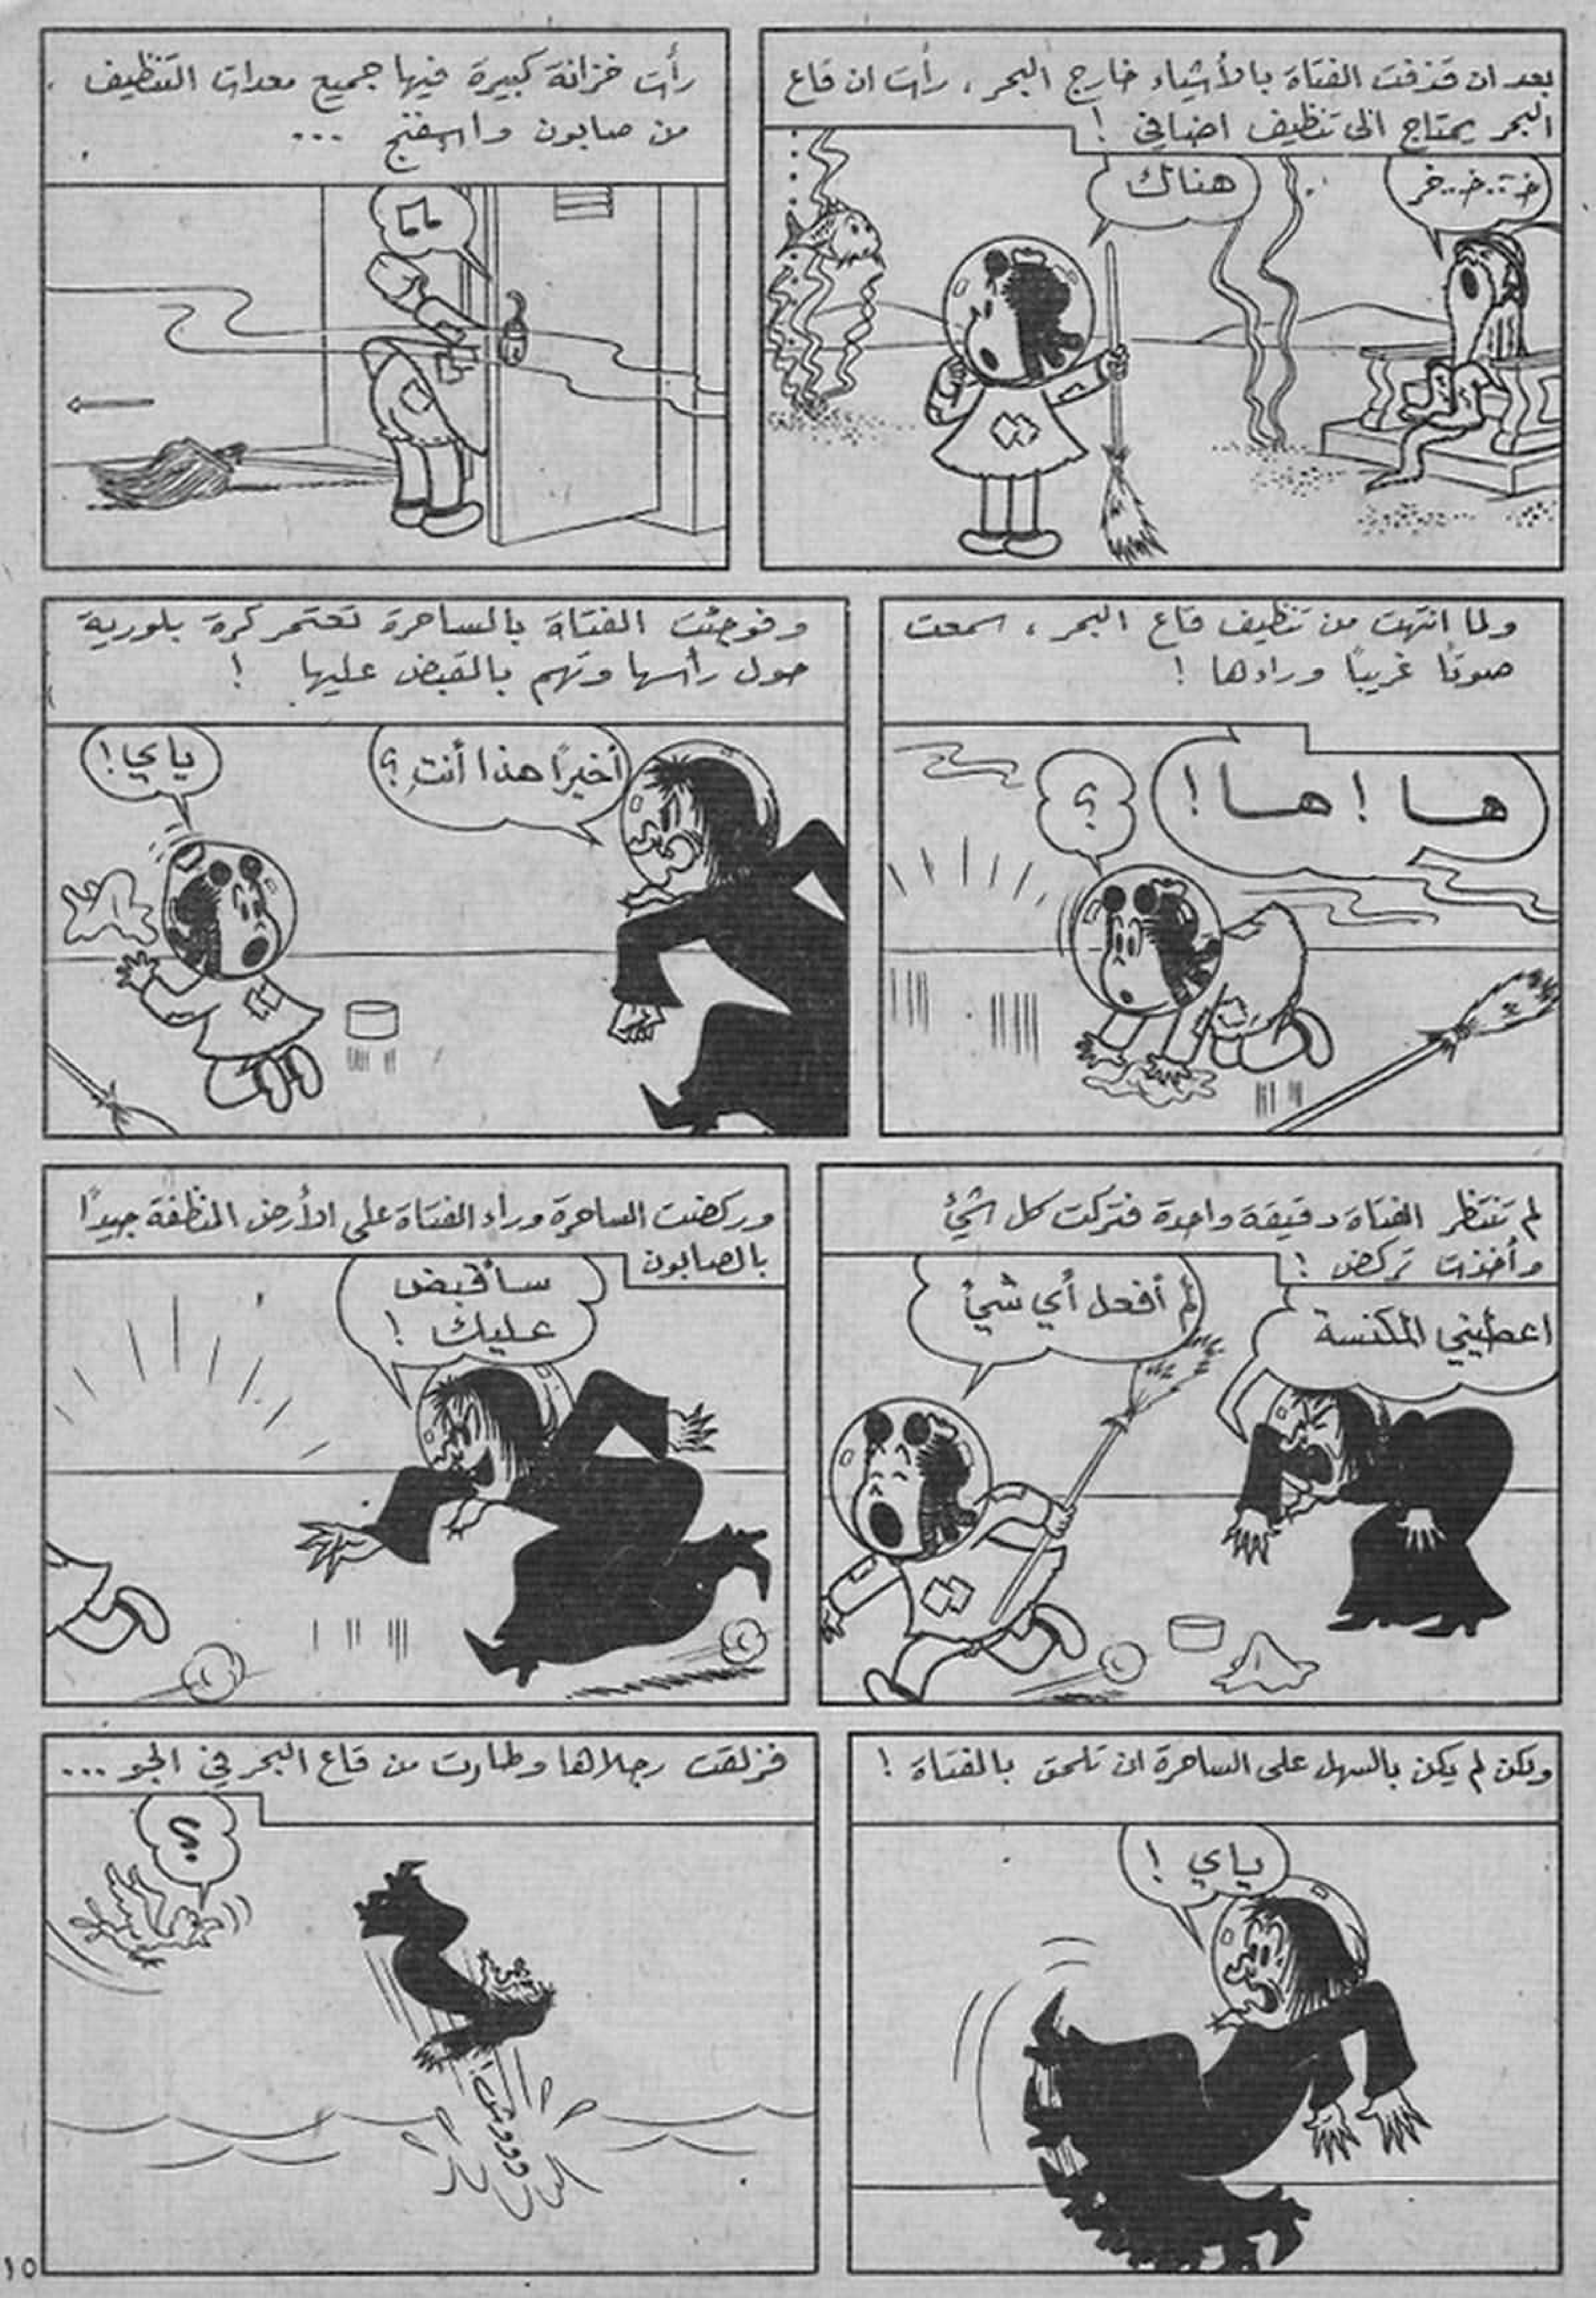 بعد ان قذفت الفتاة بالأشياء خارج البحر، رأت ان قاع
البحر يحتاج الى تنظيف اضافي !
خ..خ..خر
هناك
رأت خزانة كبيرة فيها جميع معدات التنظيف
من صابون واسفنج ...
ولما انتهت من تنظيف قاع البحر، سمعت
صوتًا غريبًا وراءها !
ها ! ها !
؟
وفوجئت الفتاة بالساحرة تعتمر كرة بلورية
حول رأسها وتهم بالقبض عليها !
أخيرًا هذا أنتِ ؟
ياي !
لم تنتظر الفتاة دقيقة واحدة فتركت كل شيء
وأخذت تركض !
اعطيني المكنسة
لم أفعل أي شيئ
وركضت الساحرة وراء الفتاة على الأرض المنظفة جيدًا
بالصابون
سأقبض
عليك !
ولكن لم يكن بالسهل على الساحرة ان تلحق بالفتاة !
ياي !
فزلقت رجلاها وطارت من قاع البحر في الجو ...
؟
١٥